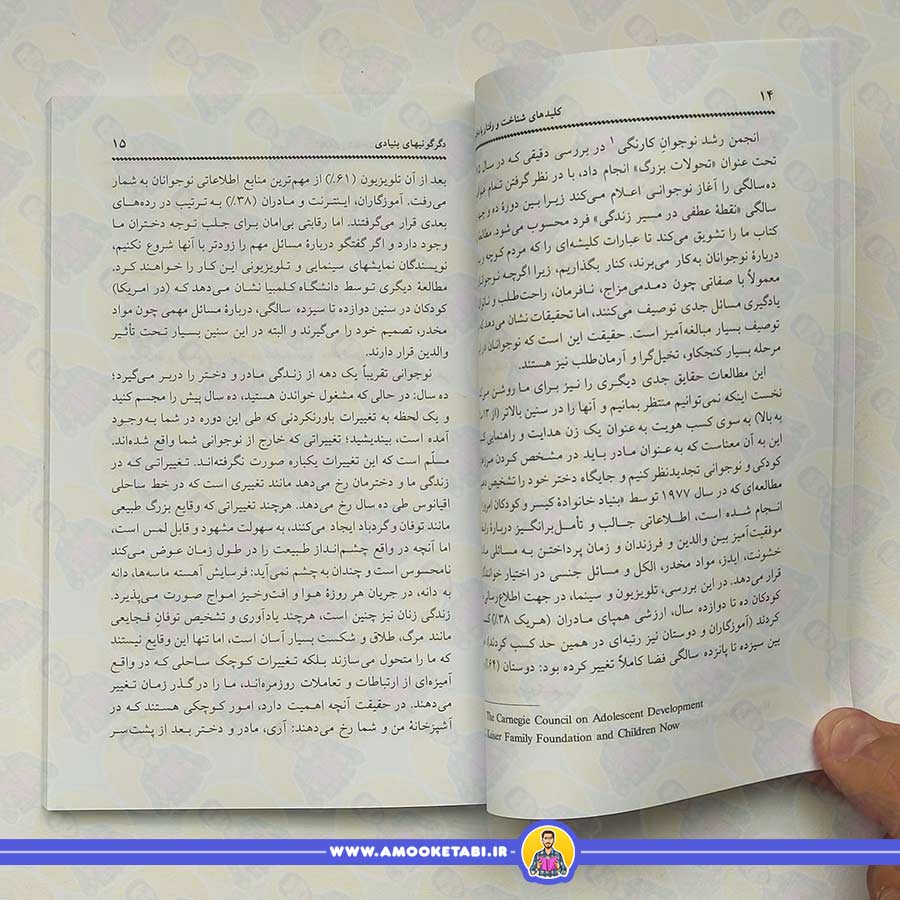 ۱۴
کلیدهای شناخت و رفتار با
انجمن رشد نوجوان کارنگی ۱ در بررسی دقیقی که در سال
تحت عنوان «تحولات بزرگ» انجام داد، با در نظر گرفتن تمام
ده‌سالگی را آغاز نوجوانی اعلام می‌کند زیرا بین دورهٔ ده و
سالگی «نقطهٔ عطفی در مسیر زندگی» فرد محسوب می‌شود.
کتاب ما را تشویق می‌کند تا عبارات کلیشه‌ای را که مردم کوچه و
دربارهٔ نوجوانان به‌کار می‌برند، کنار بگذاریم، زیرا اگرچه
معمولاً با صفاتی چون دمدمی‌مزاج، نافرمان، راحت‌طلب و
یادگیری مسائل جدی توصیف می‌کنند، اما تحقیقات نشان می‌دهد
توصیف بسیار مبالغه‌آمیز است. حقیقت این است که نوجوانان در
مرحله بسیار کنجکاو، تخیل‌گرا و آرمان‌طلب نیز هستند.
این مطالعات حقایق جدی دیگری را نیز برای ما روشن
نخست اینکه نمی‌توانیم منتظر بمانیم و آنها را در سنین بالاتر (از
به بالا) به سوی کسب هویت به عنوان یک زن هدایت و راهنمایی
این به آن معناست که به عنوان مادر باید در مشخص کردن
کودکی و نوجوانی تجدیدنظر کنیم و جایگاه دختر خود را تشخیص
مطالعه‌ای که در سال ۱۹۷۷ توسط «بنیاد خانوادهٔ کیسر و کودکان
انجام شده است، اطلاعاتی جالب و تأمل‌برانگیز دربارهٔ
موفقیت‌آمیز بین والدین و فرزندان و زمان پرداختن به مسائلی
خشونت، ایدز، مواد مخدر، الکل و مسائل جنسی در اختیار
قرار می‌دهد. در این بررسی، تلویزیون و سینما، در جهت
کودکان ده تا دوازده سال، ارزشی همپای مادران (هریک ۳۸٪)
کردند (آموزگاران و دوستان نیز رتبه‌ای در همین حد کسب کردند)
بین سیزده تا پانزده سالگی فضا کاملاً تغییر کرده بود: دوستان (۶۴٪)
The Carnegie Council on Adolescent Development
Kaiser Family Foundation and Children Now
دگرگونیهای بنیادی
۱۵
بعد از آن تلویزیون (۶۱٪) از مهم‌ترین منابع اطلاعاتی نوجوانان به شمار
می‌رفت. آموزگاران، اینترنت و مادران (۳۸٪) به ترتیب در رده‌های
بعدی قرار می‌گرفتند. اما رقابتی بی‌امان برای جلب توجه دختران ما
وجود دارد و اگر گفتگو دربارهٔ مسائل مهم را زودتر با آنها شروع نکنیم،
نویسندگان نمایشهای سینمایی و تلویزیونی این کار را خواهند کرد.
مطالعهٔ دیگری توسط دانشگاه کلمبیا نشان می‌دهد که (در امریکا)
کودکان در سنین دوازده تا سیزده سالگی، دربارهٔ مسائل مهمی چون مواد
مخدر، تصمیم خود را می‌گیرند و البته در این سنین بسیار تحت تأثیر
والدین قرار دارند.
نوجوانی تقریباً یک دهه از زندگی مادر و دختر را دربر می‌گیرد؛
ده سال: در حالی که مشغول خواندن هستید، ده سال پیش را مجسم کنید
و یک لحظه به تغییرات باورنکردنی که طی این دوره در شما به‌وجود
آمده است، بیندیشید؛ تغییراتی که خارج از نوجوانی شما واقع شده‌اند.
مسلّم است که این تغییرات یکباره صورت نگرفته‌اند. تغییراتی که در
زندگی ما و دخترمان رخ می‌دهد مانند تغییری است که در خط ساحلی
اقیانوس طی ده سال رخ می‌دهد. هرچند تغییراتی که وقایع بزرگ طبیعی
مانند توفان و گردباد ایجاد می‌کنند، به سهولت مشهود و قابل لمس است،
اما آنچه در واقع چشم‌انداز طبیعت را در طول زمان عوض می‌کند
نامحسوس است و چندان به چشم نمی‌آید: فرسایش آهسته ماسه‌ها، دانه
به دانه، در جریان هر روزهٔ هوا و افت‌وخیز امواج صورت می‌پذیرد.
زندگی زنان نیز چنین است، هرچند یادآوری و تشخیص توفانِ فجایعی
مانند مرگ، طلاق و شکست بسیار آسان است، اما تنها این وقایع نیستند
که ما را متحول می‌سازند بلکه تغییرات کوچک ساحلی که در واقع
آمیزه‌ای از ارتباطات و تعاملات روزمره‌اند، ما را در گذر زمان تغییر
می‌دهند. در حقیقت آنچه اهمیت دارد، امور کوچکی هستند که در
آشپزخانهٔ من و شما رخ می‌دهند: آری، مادر و دختر بعد از پشت‌سر
WWW.AMOOKETABI.IR